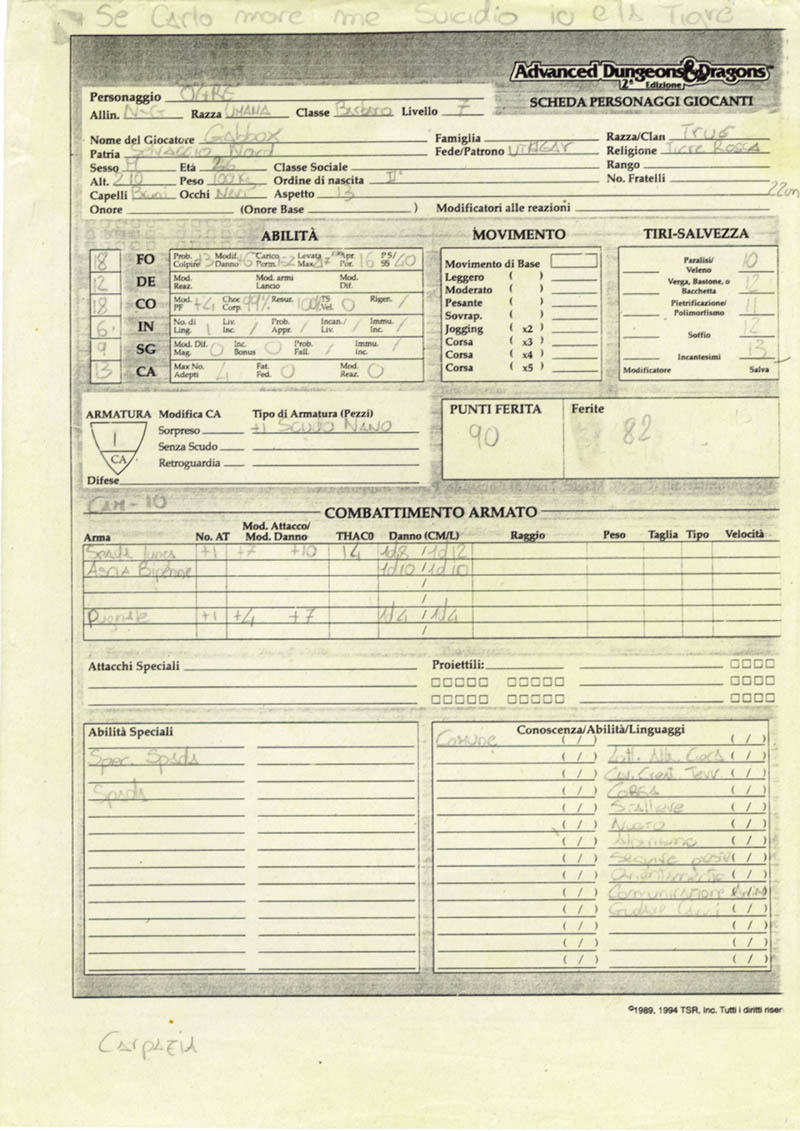 Se Carlo more me Suicidio io e la Tigre
Advanced Dungeons & Dragons
2ª Edizione
SCHEDA PERSONAGGI GIOCANTI
Personaggio OGRE
Allin. N-G Razza UMANA Classe Barbaro Livello 7
Nome del Giocatore Gabbox Famiglia Razza/Clan TRUG
Patria Nord Fede/Patrono UTHGAR Religione Tigre Rossa
Sesso M Età 26 Classe Sociale Rango
Alt. 210 Peso 100 Kg Ordine di nascita II° No. Fratelli
Capelli Bruni Occhi Neri Aspetto 13 22
Onore (Onore Base ) Modificatori alle reazioni
ABILITÀ
18 FO Prob. Colpire Modif. Danno Carico Perm. Levata Max. Apr. Por. 16 PS/SS
12 DE Mod. Reaz. Mod. armi Lancio Mod. Dif.
18 CO Mod. PF +4 Choc Corp. 99% Resur. 100% TS Vel. 0 Rigen. /
6 IN No. di Ling. 1 Liv. Inc. / Prob. Appr. / Incan./Liv. / Immu. Inc. /
9 SG Mod. Dif. Mag. 0 Inc. Bonus 0 Prob. Fall. / Immu. Inc. /
13 CA Max No. Adepti 4 Fat. Fed. 0 Mod. Reaz. 0
MOVIMENTO
Movimento di Base
Leggero ( )
Moderato ( )
Pesante ( )
Sovrap. ( )
Jogging ( x2 )
Corsa ( x3 )
Corsa ( x4 )
Corsa ( x5 )
TIRI-SALVEZZA
Paralisi/Veleno 10
Verga, Bastone, o Bacchetta 12
Pietrificazione/Polimorfismo 11
Soffio 12
Incantesimi 13
Modificatore Salva
ARMATURA Modifica CA Tipo di Armatura (Pezzi)
1 CA
Sorpreso +1 SCUDO NANO
Senza Scudo
Retroguardia
Difese
PUNTI FERITA 90
Ferite 82
CAM-10
COMBATTIMENTO ARMATO
Arma No. AT Mod. Attacco/Mod. Danno THAC0 Danno (CM/L) Raggio Peso Taglia Tipo Velocità
Spada Lunga +1 +7 +10 14 1d8 / 1d12
Ascia Bipenne 1d10 / 1d10
/
/
Pugnale +1 +4 +7 1d4 / 1d4
/
Attacchi Speciali Proiettili:
Abilità Speciali
Spec. Spada
Spada
Conoscenza/Abilità/Linguaggi
Comune ( / ) ( / )
( / ) ( / )
( / ) ( / )
( / ) CORSA ( / )
( / ) ( / )
( / ) Nuoto ( / )
( / ) ( / )
( / ) Seguire piste ( / )
( / ) Orientamento ( / )
( / ) Comunicazione ( / )
( / ) ( / )
( / ) ( / )
( / ) ( / )
( / ) ( / )
©1989, 1994 TSR, Inc. Tutti i diritti riser
Carpazia